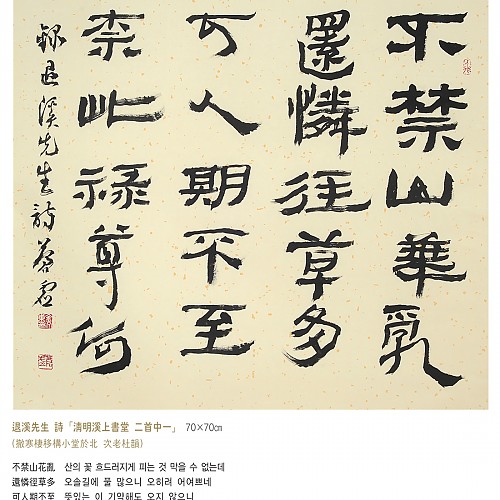 不禁山華亂
還憐徑草多
可人期不至
柰此綠尊何
錄退溪先生詩
退溪先生 詩「淸明溪上書堂 二首中一」 70×70㎝
(撤寒棲移構小堂於北 次老杜韻)
不禁山花亂 산의 꽃 흐드러지게 피는 것 막을 수 없는데
還憐徑草多 오솔길에 풀 많으니 오히려 어여쁘네
可人期不至 뜻있는 이 기약해도 오지 않으니